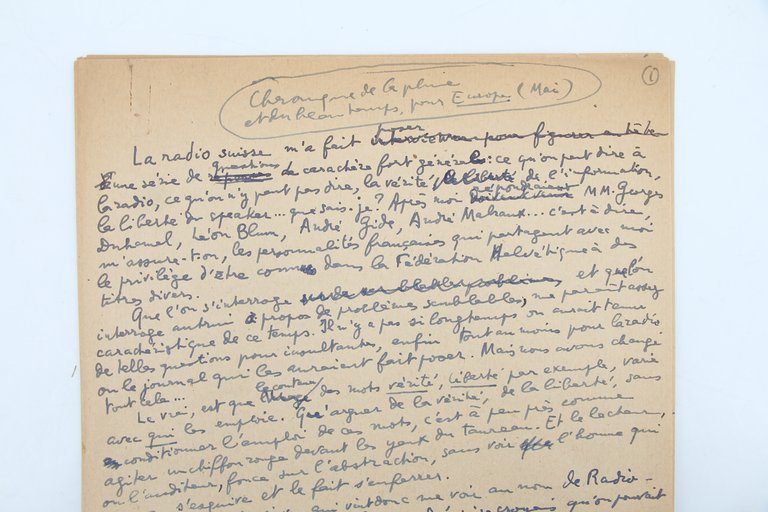 ①
Chronique de la pluie
et du beau temps, pour Europe (Mai)
La radio suisse m'a fait poser interviewer pour figurer en tête
d'une série de questions réponses de caractère fort général : ce qu'on peut dire à
la radio, ce qu'on n'y peut pas dire, la vérité, la liberté de l'information,
la liberté du speaker... que sais-je ? Après moi répondraient MM. Georges
Duhamel, Léon Blum, André Gide, André Malraux... c'est à dire,
m'assure-t-on, les personnalités françaises qui partagent avec moi
le privilège d'être connues dans la Fédération Helvétique à des
titres divers.
Que l'on s'interroge et qu'on
interroge autrui à propos de problèmes semblables, me paraît assez
caractéristique de ce temps. Il n'y a pas si longtemps on aurait tenu
de telles questions pour insultantes, enfin tout au moins pour la radio
ou le journal qui les auraient fait poser. Mais nous avons changé
tout cela...
Le vrai, est que le contenu des mots vérité, liberté par exemple, varie
avec qui les emploie. Qu'arguer de la vérité, de la liberté, sans
conditionner l'emploi de ces mots, c'est à peu près comme
agiter un chiffon rouge devant les yeux du taureau. Et le lecteur,
ou l'auditeur, fonce sur l'abstraction, sans voir l'homme qui
s'esquive et le fait s'enferrer.
qui vint donc me voir au nom de Radio-
qu'on pouvait